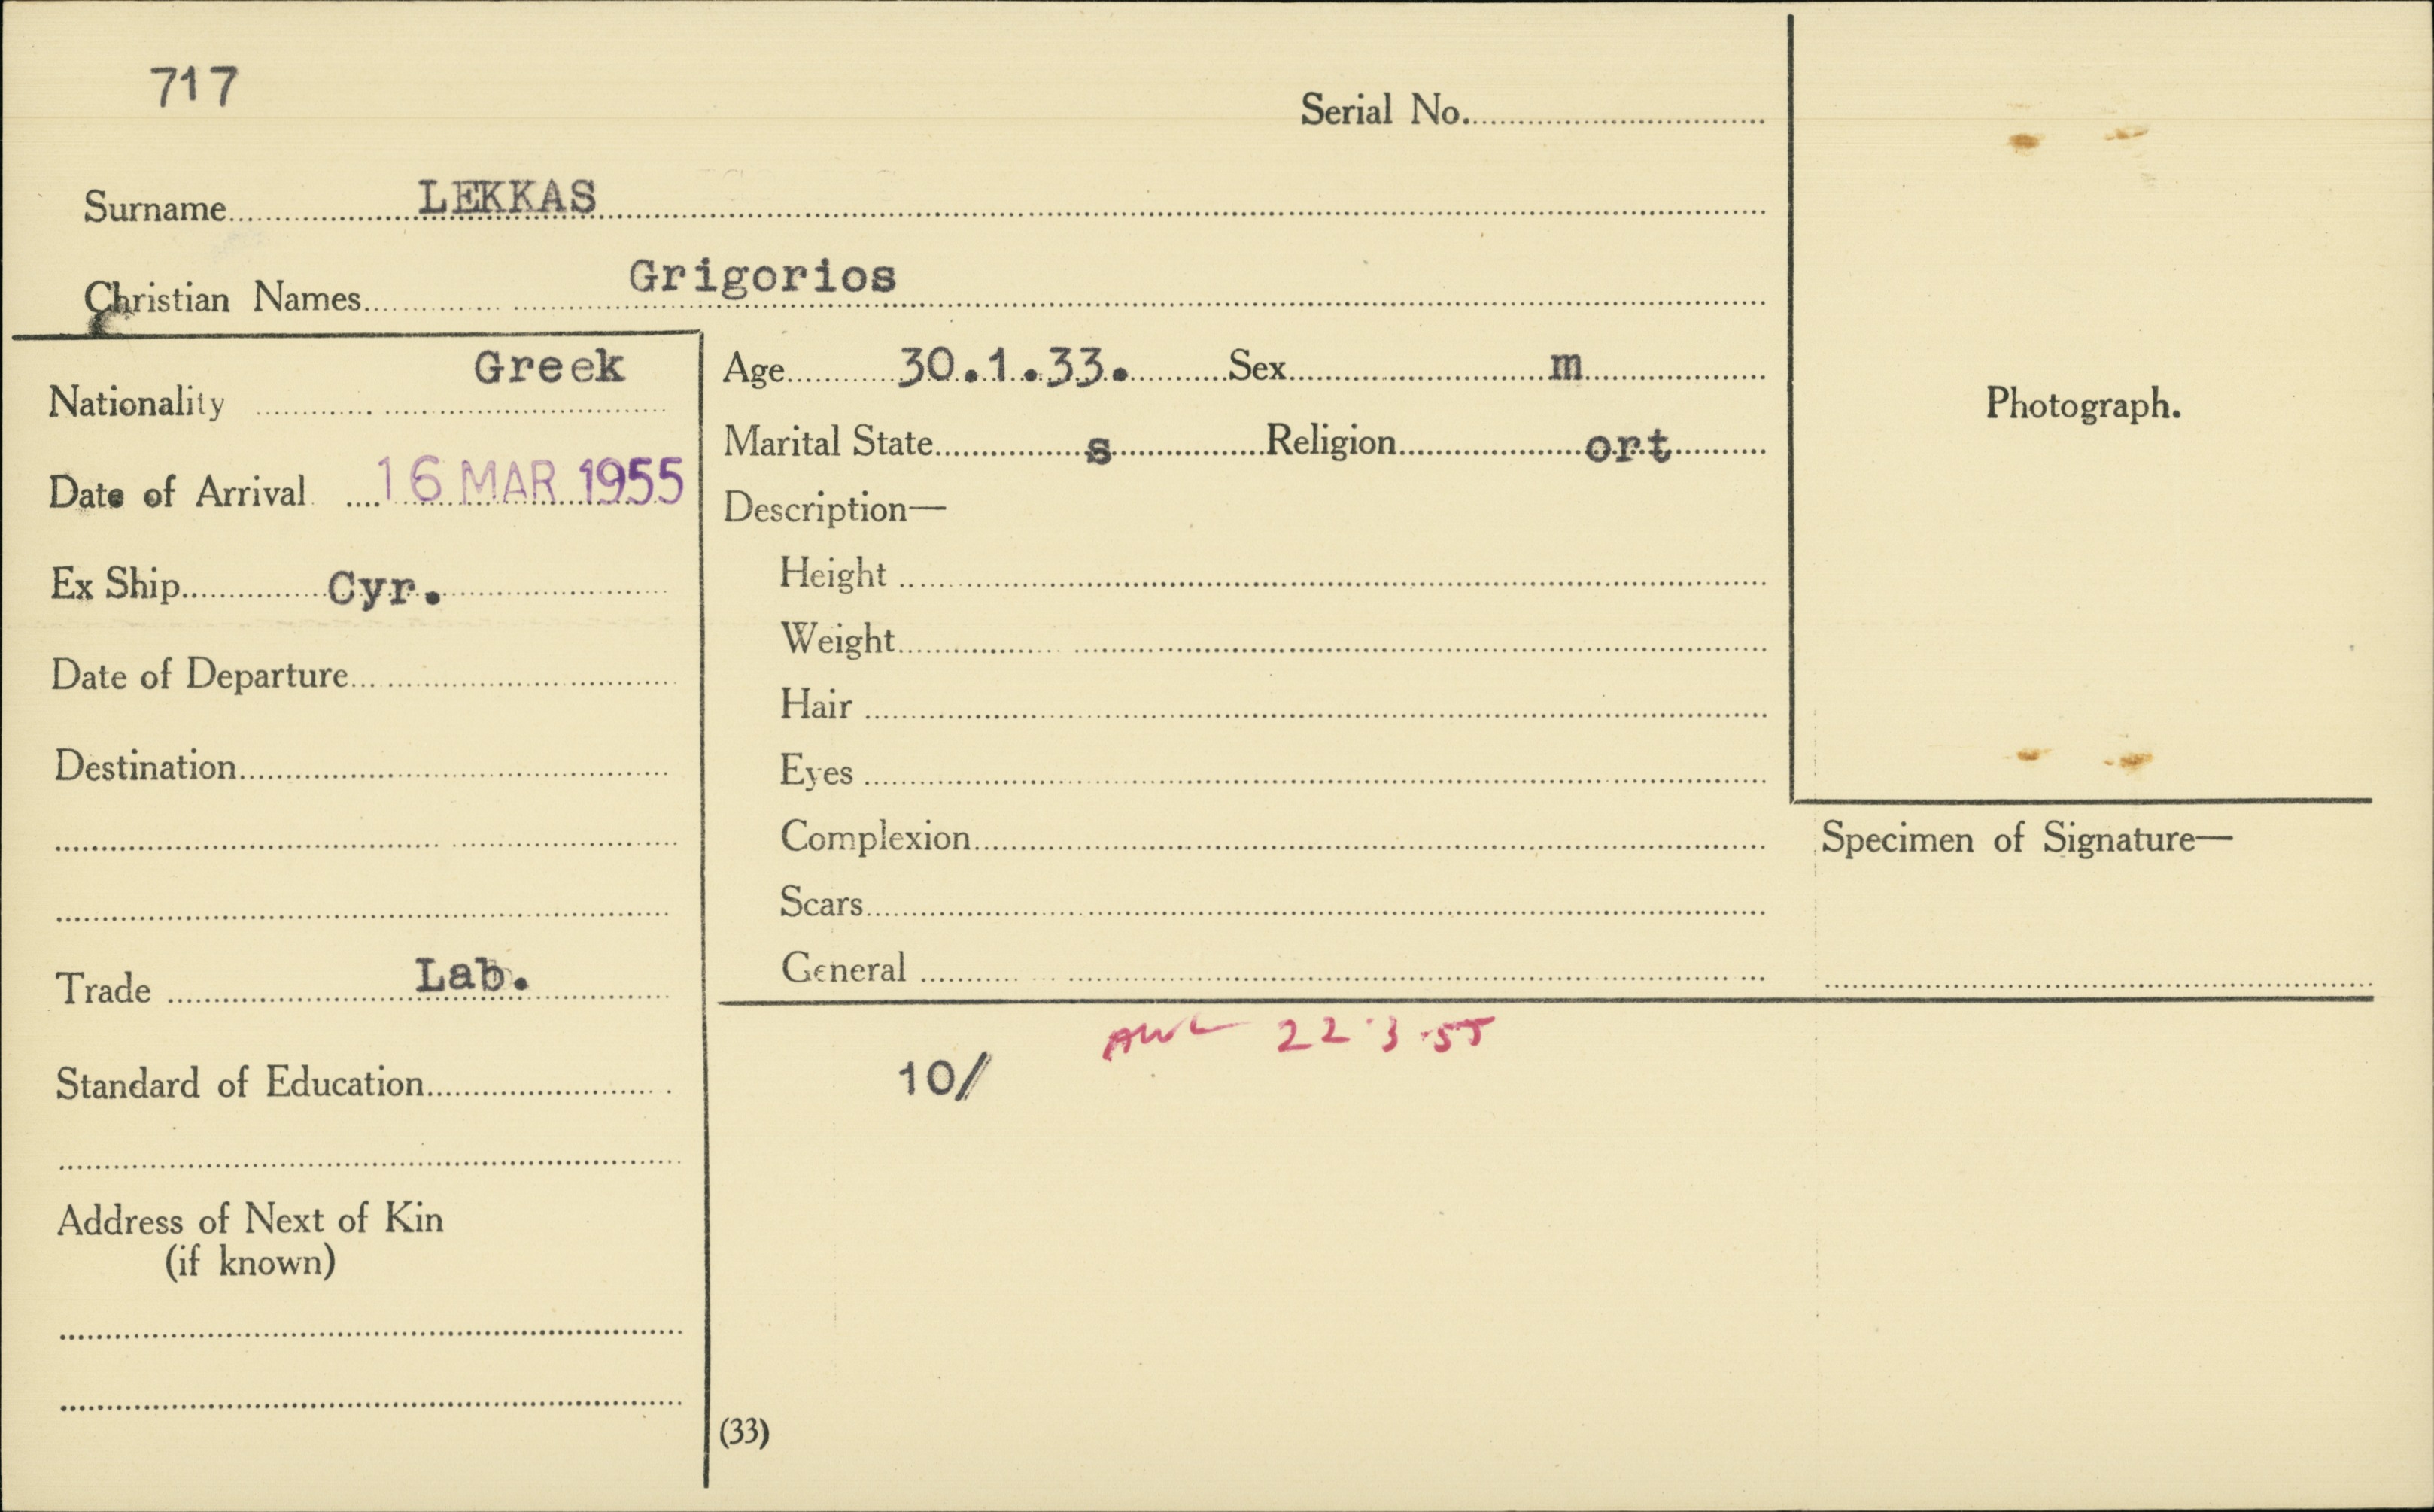 717
Serial No.
Surname LEKKAS
Christian Names Grigorios
Nationality Greek
Date of Arrival 16 MAR 1955
Ex Ship Cyr.
Date of Departure
Destination
Trade Lab.
Standard of Education
Address of Next of Kin
(if known)
Age 30.1.33. Sex m
Marital State s Religion ort
Description—
Height
Weight
Hair
Eyes
Complexion
Scars
General
Photograph.
Specimen of Signature—
AWL 22.3.55
10/
(33)